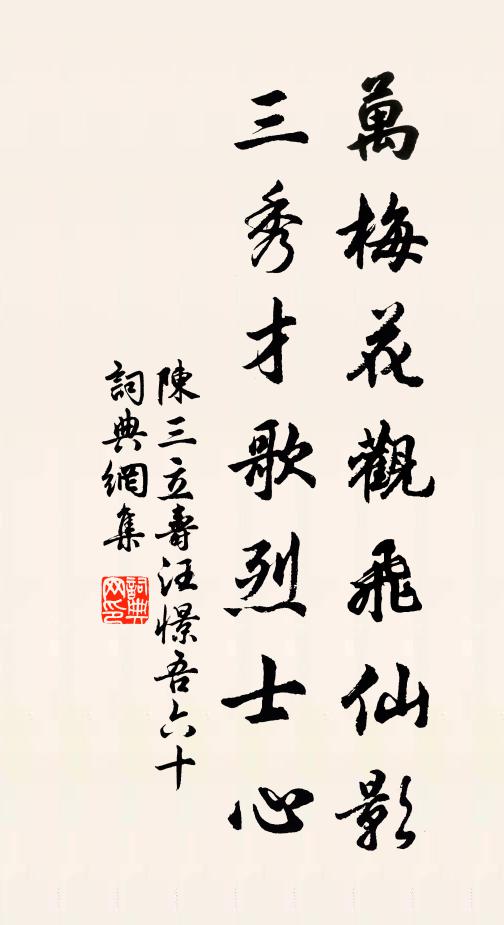 萬梅花觀飛仙影
三秀才歌烈士心
陳三立壽汪憬吾六十
詞典網集
詞典網印